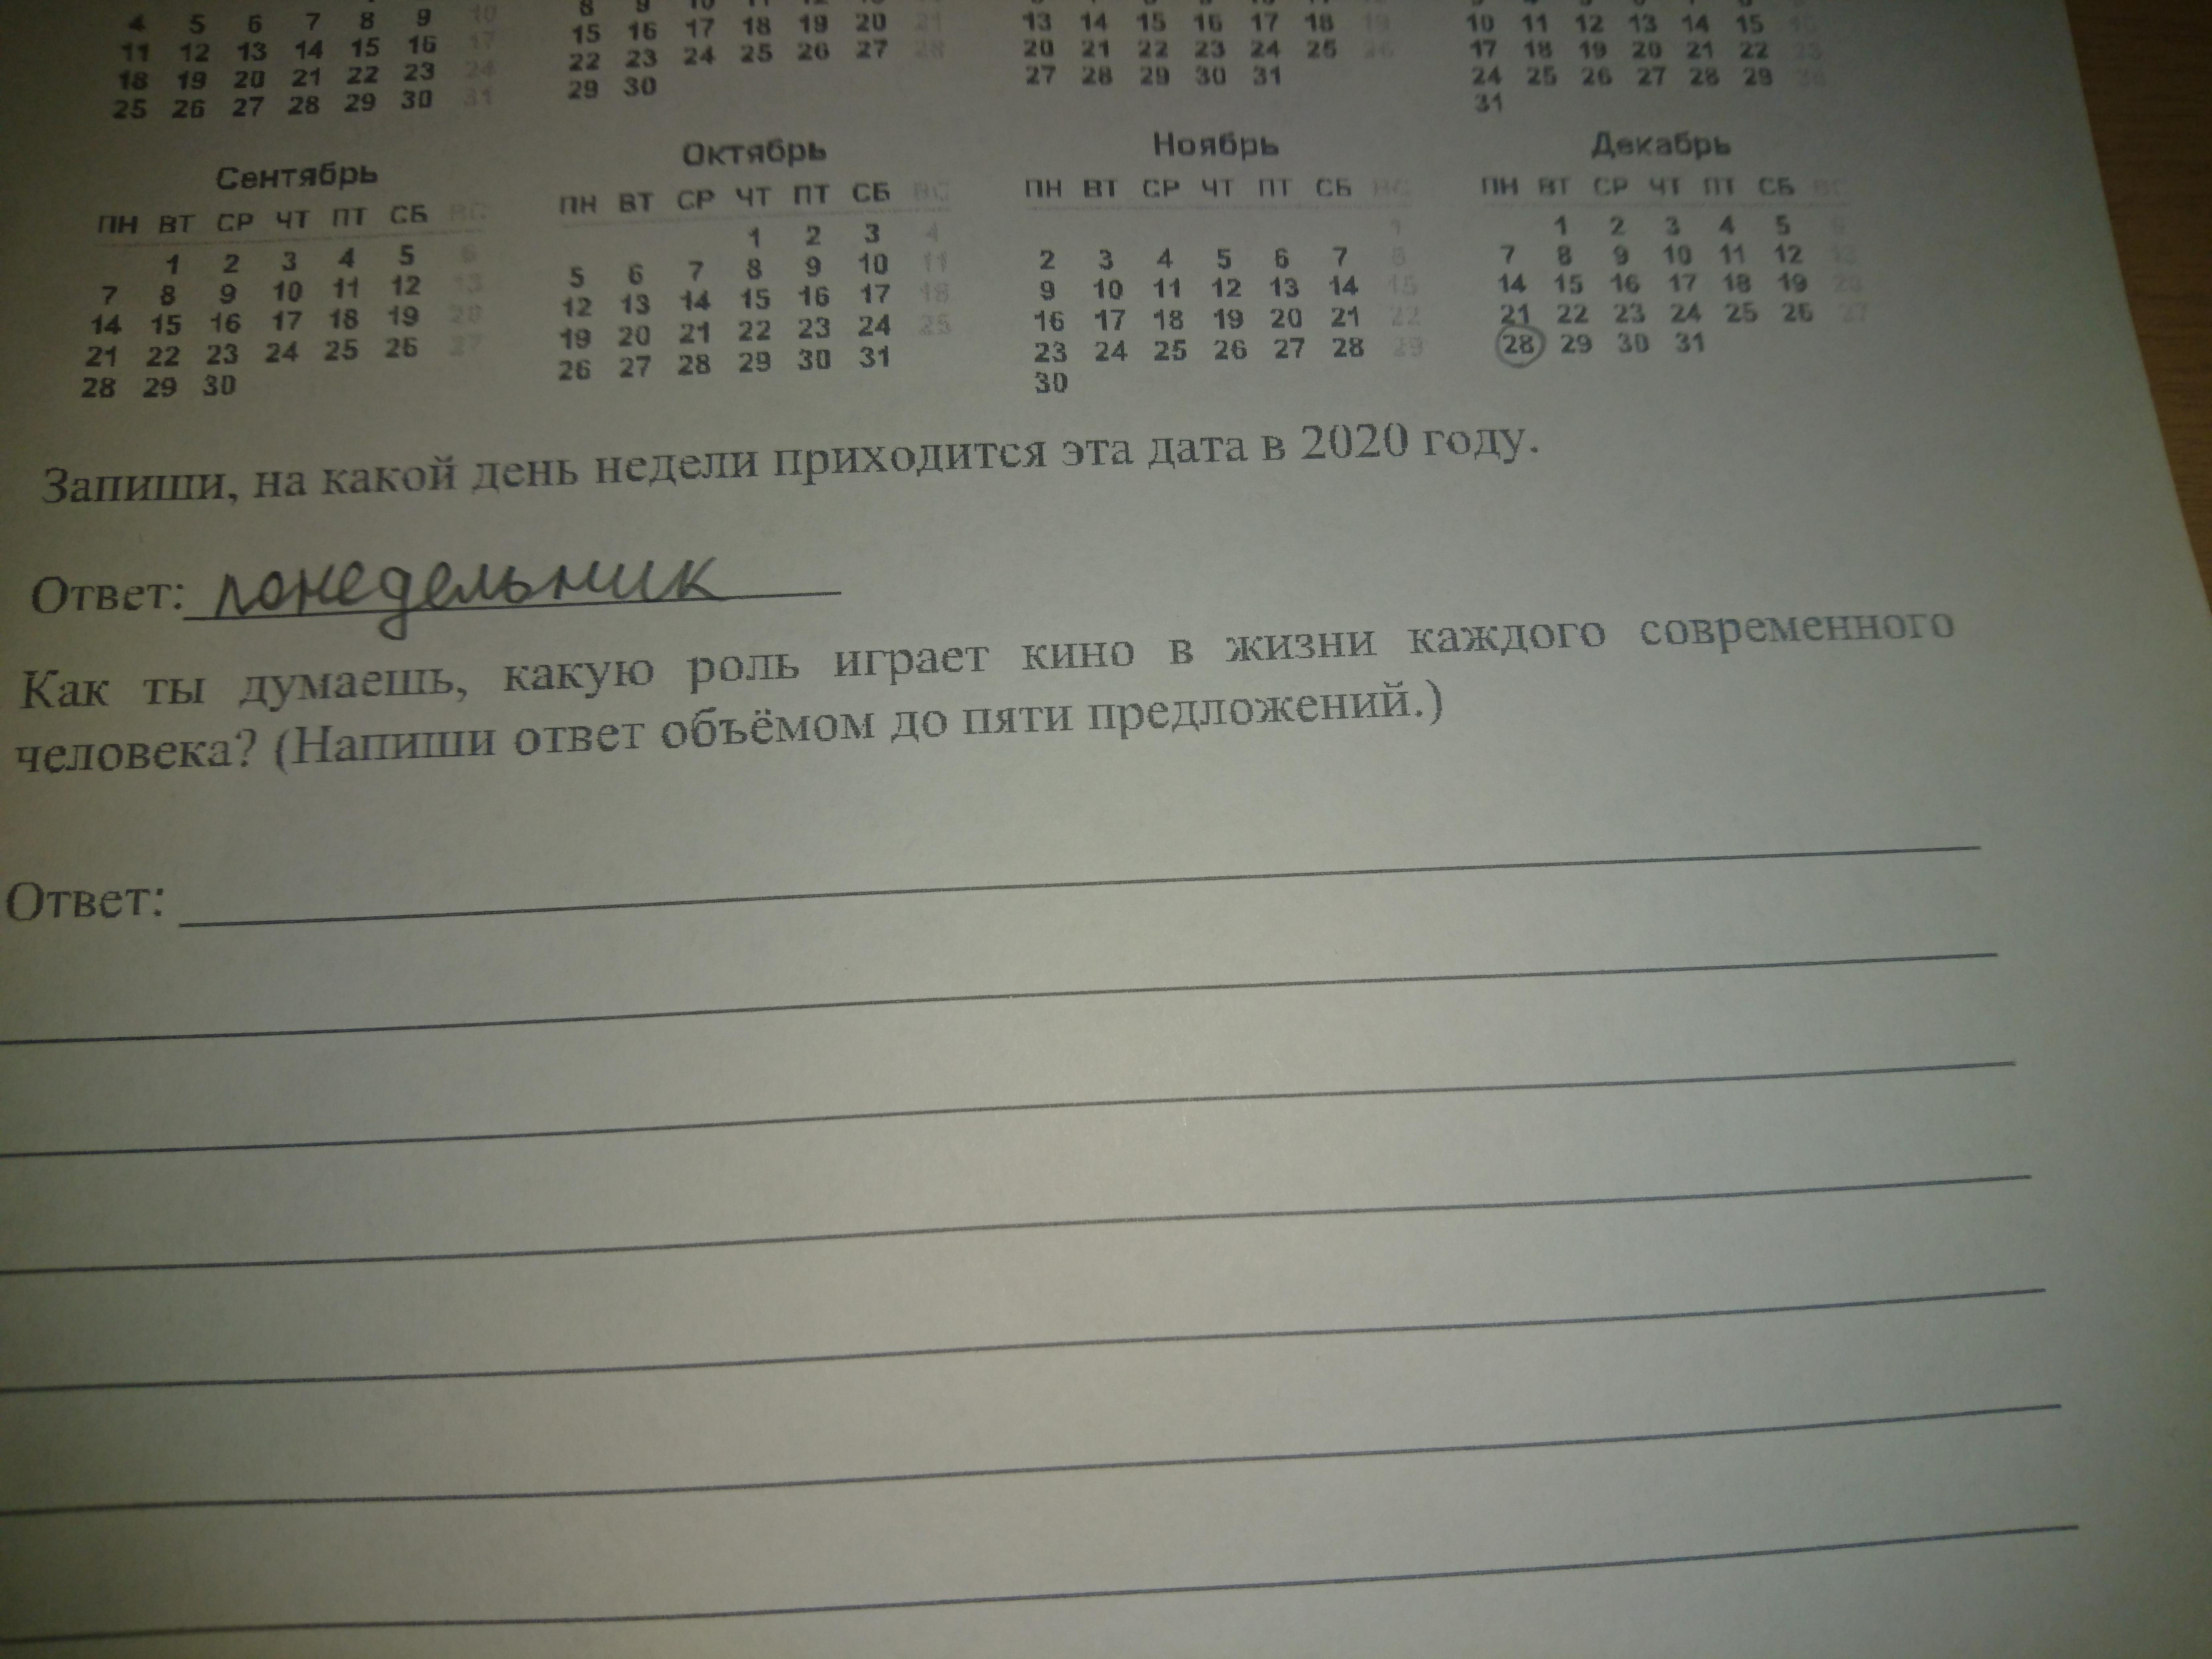 4 5 6 7 8 9 10 8 9 10 11 12
11 12 13 14 15 16 17 15 16 17 18 19 20 21 13 14 15 16 17 18 19 10 11 12 13 14 15 16
18 19 20 21 22 23 24 22 23 24 25 26 27 28 20 21 22 23 24 25 26 17 18 19 20 21 22 23
25 26 27 28 29 30 31 29 30 27 28 29 30 31 24 25 26 27 28 29 30
31
Сентябрь Октябрь Ноябрь Декабрь
ПН ВТ СР ЧТ ПТ СБ ВС ПН ВТ СР ЧТ ПТ СБ ВС ПН ВТ СР ЧТ ПТ СБ ВС ПН ВТ СР ЧТ ПТ СБ ВС
1 2 3 4 5 6 1 2 3 4 1 1 2 3 4 5 6
7 8 9 10 11 12 13 5 6 7 8 9 10 11 2 3 4 5 6 7 8 7 8 9 10 11 12 13
14 15 16 17 18 19 20 12 13 14 15 16 17 18 9 10 11 12 13 14 15 14 15 16 17 18 19 20
21 22 23 24 25 26 27 19 20 21 22 23 24 25 16 17 18 19 20 21 22 21 22 23 24 25 26 27
28 29 30 26 27 28 29 30 31 23 24 25 26 27 28 29 28 29 30 31
30
Запиши, на какой день недели приходится эта дата в 2020 году.
Ответ: понедельник
Как ты думаешь, какую роль играет кино в жизни каждого современного
человека? (Напиши ответ объёмом до пяти предложений.)
Ответ: